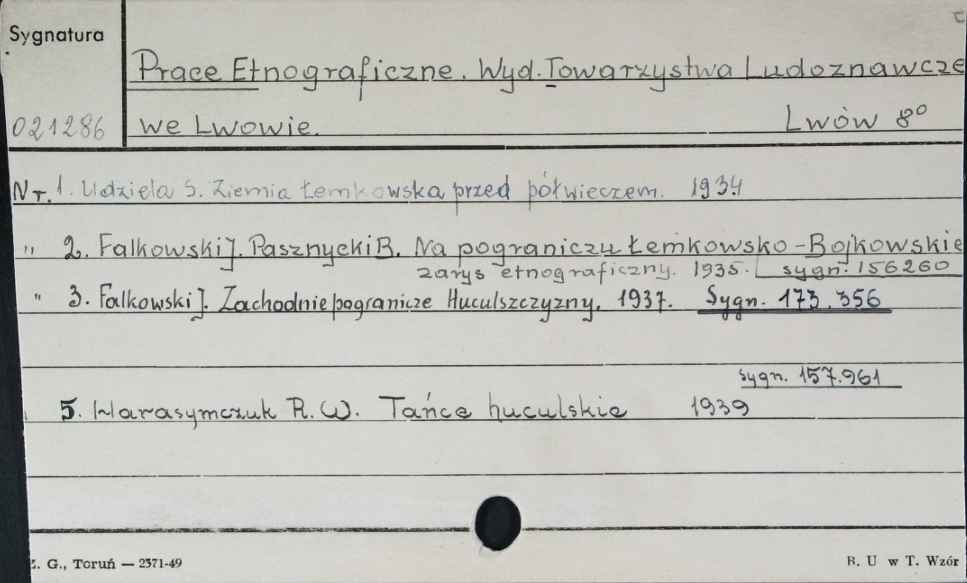 Sygnatura
Prace Etnograficzne. Wyd. Towarzystwa Ludoznawcze
021286
we Lwowie. Lwów 8º
Nr. 1. Udziela S. Ziemia Łemkowska przed półwieczem. 1934
" 2. Falkowski J. Pasznycki B. Na pograniczu Łemkowsko - Bojkowskie
zarys etnograficzny. 1935. sygn. 156260
" 3. Falkowski J. Zachodnie pogranicze Huculszczyzny. 1937. Sygn. 173.356
sygn. 157.961
5. Harasymczuk R. W. Tańce huculskie 1939
G., Toruń — 2371-49
B. U w T. Wzór